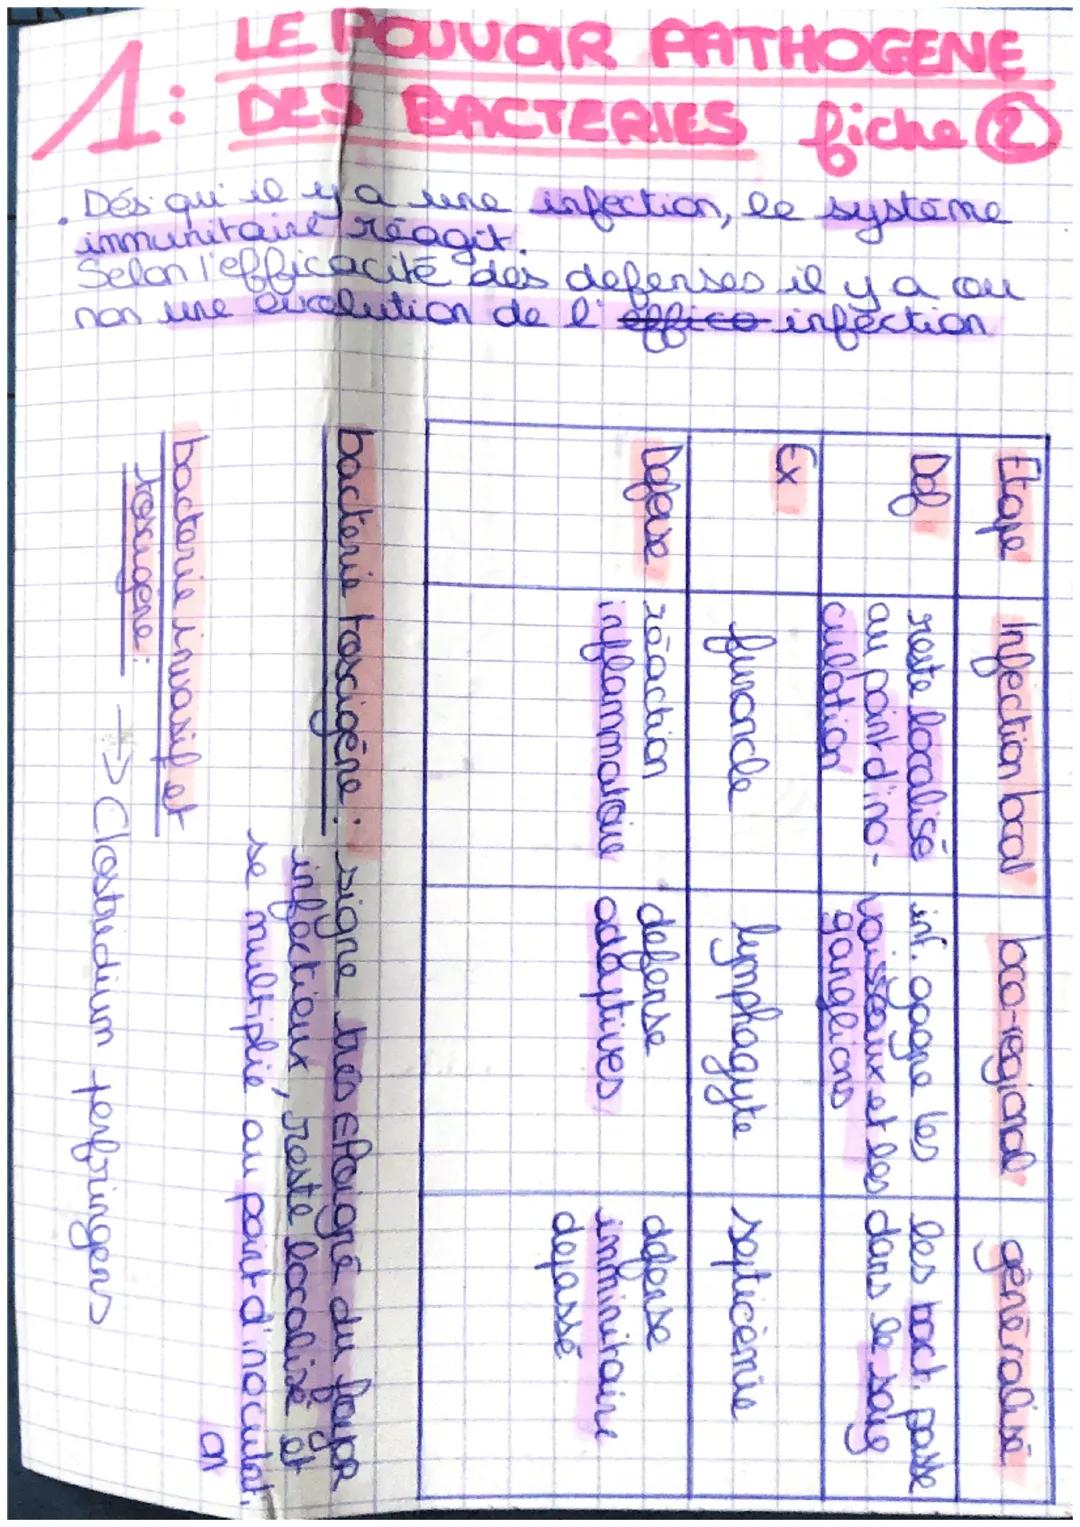 1: LE POUVOIR PATHOGENE
DES BACTERIES fiche 2
. Dés qui il y a une infection, le système
immunitaire réagit.
Selon l'efficacité des defenses il y a ou
non une evolution de l' effica infection
Etape Infection local loco-regional généralisé
Def reste localisé inf. gagne les les bact. passe
au point d'ino- vaisseaux et les dans le sang
culation ganglions
Ex furoncle lymphagyte septicémie
Defense réaction defense defense
inflammatoire adaptives imminitaire
depassé
bacterie toxigène : signe tres eloigné du foyer
infectieux, reste localisé et
se multiplie au point d'inoculat.
on
bacterie invasif et
toxigene :
→ Clostridium perfringens